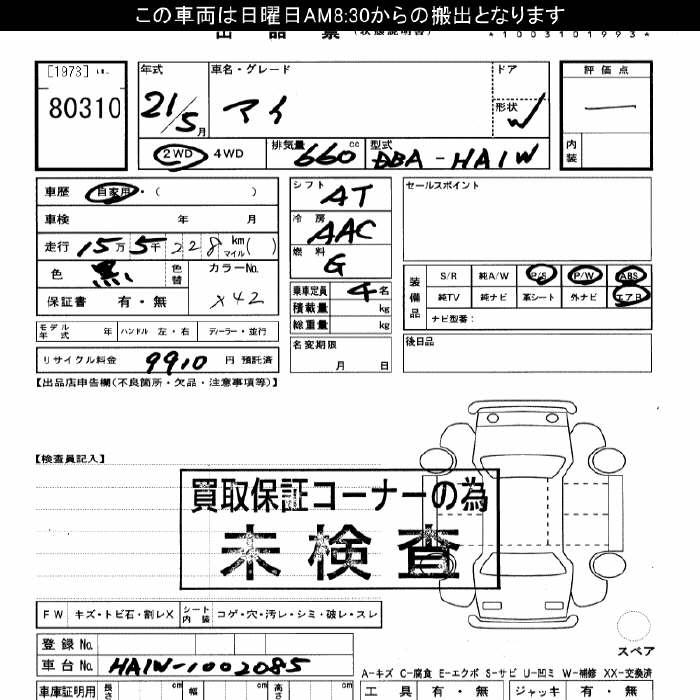 この車両は日曜日AM8:30からの搬出となります
出品票 (状態説明書) *1003101993*
[1973]
80310
年式 車名・グレード ドア 評価点
21/5月 アイ 形状 W 一
2WD 4WD 排気量 660cc 型式 DBA-HA1W 内装
車歴 自家用・( ) シフト AT セールスポイント
車検 年 月 冷房 AAC
走行 15万5千228km マイル( ) 燃料 G
色 黒 色替 カラーNo. X42 装備品 S/R 純A/W P/S P/W ABS
保証書 有・無 乗車定員 4名 純TV 純ナビ 革シート 外ナビ エアB
積載量 kg ナビ型番:
モデル年式 年 ハンドル 左・右 ディーラー・並行 総重量 kg
リサイクル料金 9910 円 預託済 名変期限 月 日 後日品
【出品店申告欄(不良箇所・欠品・注意事項等)】
【検査員記入】
買取保証コーナーの為
未検査
FW キズ・トビ石・割レX シート内装 コゲ・穴・汚レ・シミ・破レ・スレ
登録No. スペア
車台No. HA1W-1002085
A-キズ C-腐食 E-エクボ S-サビ U-凹ミ W-補修 XX-交換済
車庫証明用 長さ cm 幅 cm 高さ cm 工具 有・無 ジャッキ 有・無